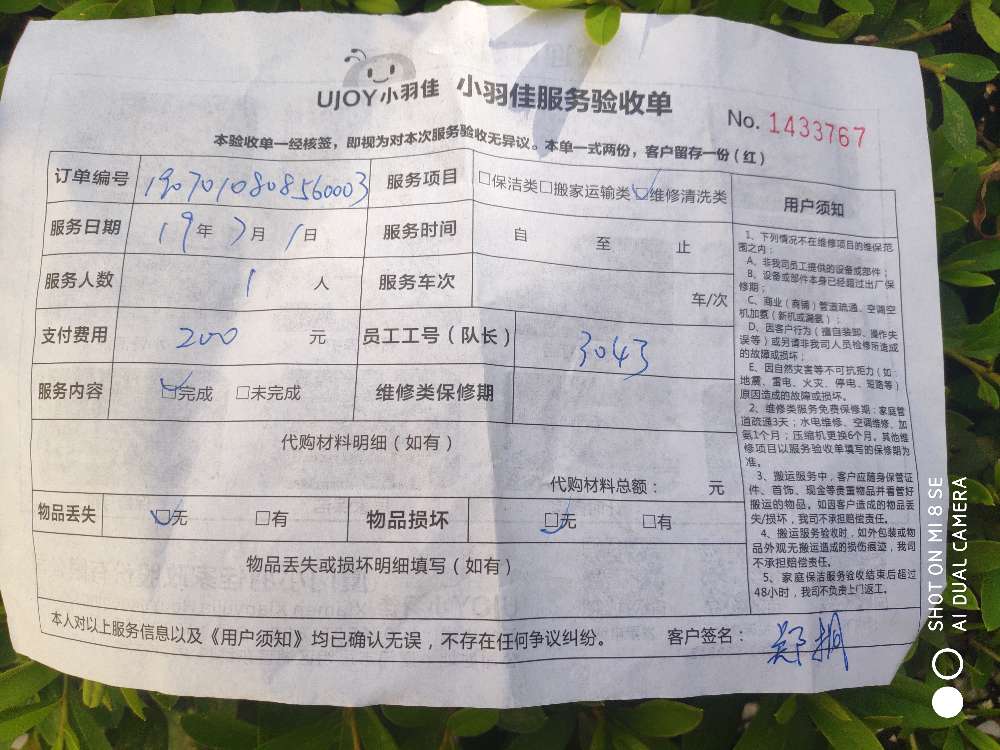 UJOY小羽佳 小羽佳服务验收单
No. 1433767
本验收单一经核签，即视为对本次服务验收无异议。本单一式两份，客户留存一份（红）
订单编号 1907010808560003 服务项目 □保洁类□搬家运输类☑维修清洗类
服务日期 19年7月1日 服务时间 自 至 止
服务人数 1 人 服务车次 车/次
支付费用 200 元 员工工号（队长） 3043
服务内容 ☑完成 □未完成 维修类保修期
代购材料明细（如有）
代购材料总额： 元
物品丢失 ☑无 □有 物品损坏 ☑无 □有
物品丢失或损坏明细填写（如有）
本人对以上服务信息以及《用户须知》均已确认无误，不存在任何争议纠纷。 客户签名：
用户须知
1、下列情况不在维修项目的维保范
围之内：
A、非我司员工提供的设备或部件；
B、设备或部件本身已经超过出厂保
修期；
C、商业（商铺）管道疏通、空调空
机加氨（新机或漏氨）；
D、因客户行为（擅自装卸、操作失
误等）或另请非我司人员检修所造成
的故障或损坏；
E、因自然灾害等不可抗拒力（如：
地震、雷电、火灾、停电、短路等）
原因造成的故障或损坏。
2、维修类服务免费保修期：家庭管
道疏通3天；水电维修、空调维修、加
氨1个月；压缩机更换6个月。其他维
修项目以服务验收单填写的保修期为
准。
3、搬运服务中，客户应随身保管证
件、首饰、现金等贵重物品并看管好
搬运的物品。如因客户造成的物品丢
失/损坏，我司不承担赔偿责任。
4、搬运服务验收时，如外包装或物
品外观无搬运造成的损伤痕迹，我司
不承担赔偿责任。
5、家庭保洁服务验收结束后超过
48小时，我司不负责上门返工。
SHOT ON MI 8 SE
AI DUAL CAMERA